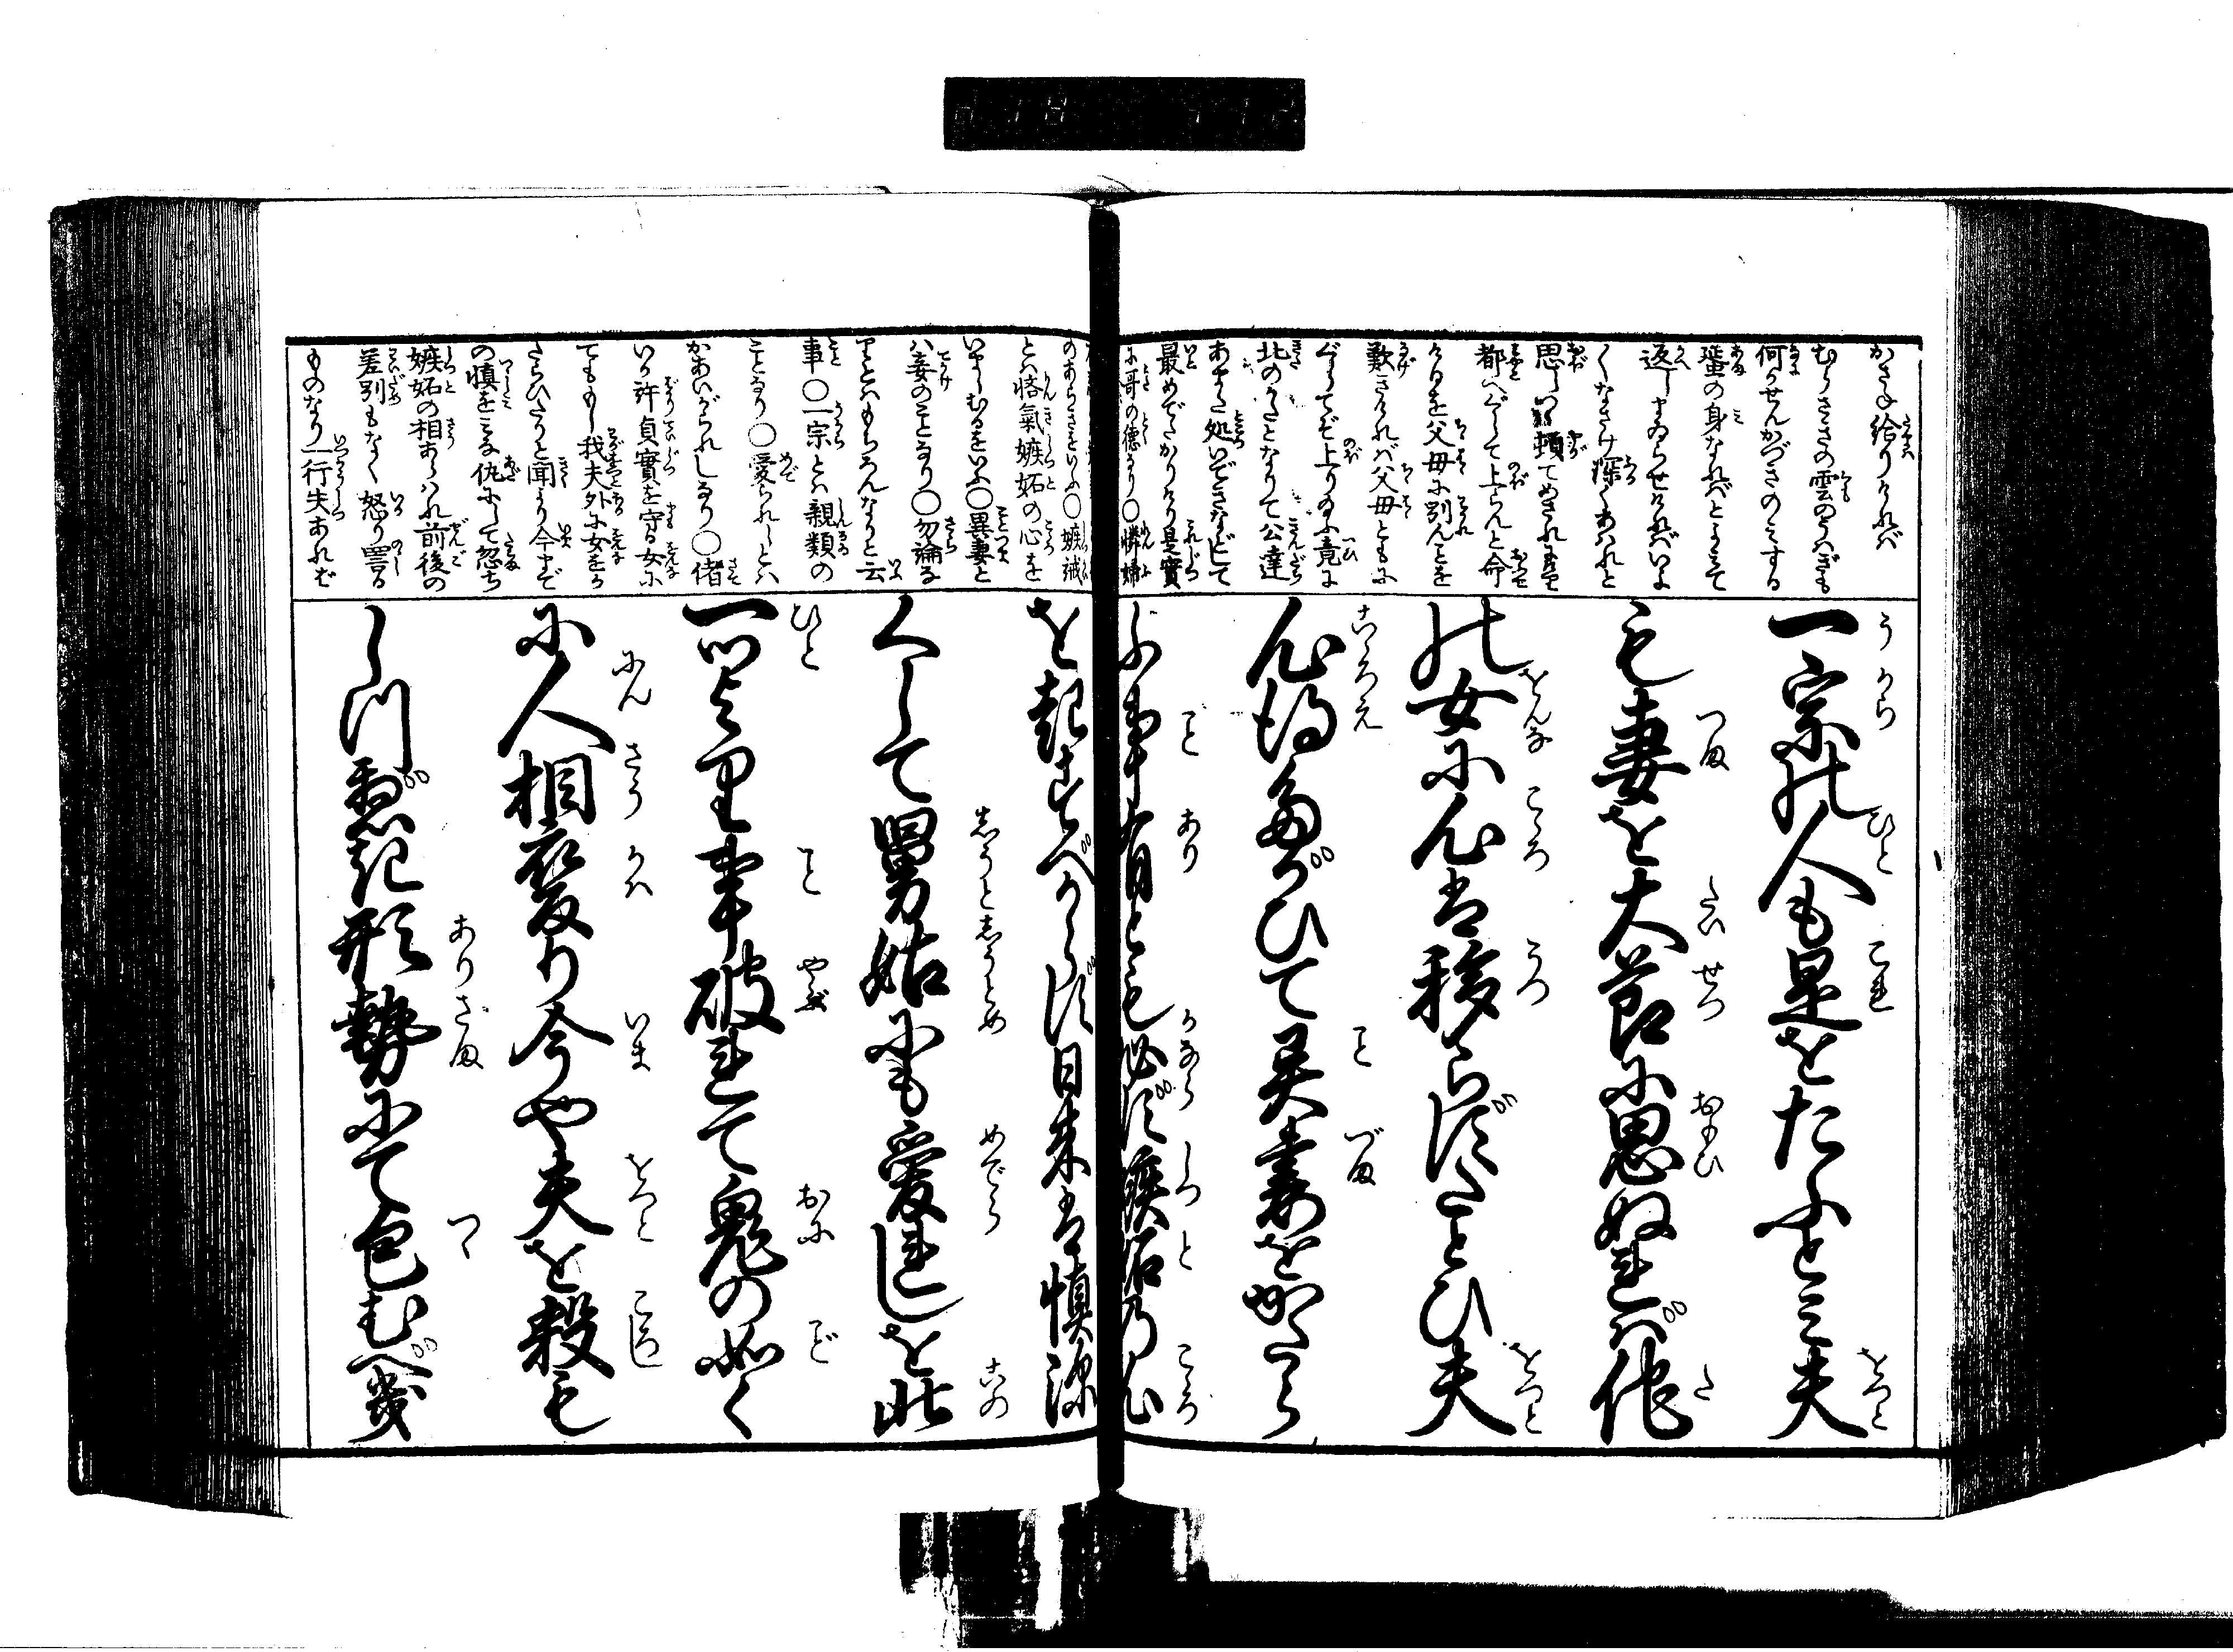 かさね給りければ
むらさきの雲のうへぎも
何かせんかづきのみする
蜑の身なればとよみて
返しまゐらせければいよ
〱なさけ深くあはれと
思しい頓てめされ
都へぐして上らんと命
ければ父母に別んことを
歎きければ父母ともに
ぐしてぞ上りゐふ竟に
北のかたとなりて公達
あまた処いできなどして
最めでたかりけり是實
に哥の徳なり〇憐婦
一宗の人も是をたふとみ夫
も妻を大節に思ぬれば他
の女に心は移らずたとひ夫
心得たがひて異妻をかたら
ふ事有とも必ず嫉妬の心
のあらきをいふ〇嫉誡
とは悋氣嫉妬の心を
いましむるをいふ〇異妻と
ハ妾のことなり〇勿論な
りとハもちろんなりと云
事〇一宗とハ親類の
ことなり〇愛られしとハ
かあいがられしなり〇偖
いか許貞實を守る女に
てももし我夫外に女をか
たらひたりと聞より今まで
の慎をこな仇にして忽ち
嫉妬の相あらハれ前後の
差別もなく怒り罵る
ものなり一行失あれば
を起すべからず日来は慎深
くして舅姑にも愛れしを此
一ツより事破れて鬼の如く
に人相変り今や夫を殺も
しつべき形勢にて包むべ幾